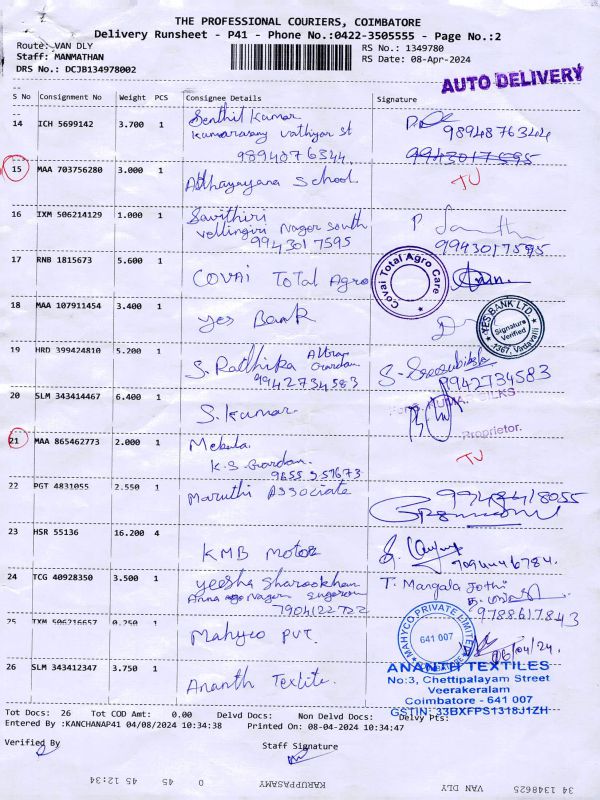 THE PROFESSIONAL COURIERS, COIMBATORE
Delivery Runsheet - P41 - Phone No.:0422-3505555 - Page No.:2
Route: VAN DLY
RS No.: 1349780
Staff: MANMATHAN
RS Date: 08-Apr-2024
DRS No.: DCJB134978002
AUTO DELIVERY
S No Consignment No Weight PCS Consignee Details Signature
14 ICH 5699142 3.700 1 Senthil Kumar
Kumarasamy Vathiyar st 98948 76344
9894876344 9943017595
15 MAA 703756280 3.000 1 Athyayana School TU
16 IXM 506214129 1.000 1 Savithiri
Vellingiri Nagar South
9943017595 9943017595
17 RNB 1815673 5.600 1 COVAI TOTAL Agro
Covai Total Agro Care
18 MAA 107911454 3.400 1 Yes Bank
YES BANK LTD
Signature
Verified
19 HRD 399424810 5.200 1 S. Rathika
Gardan
9942734583 9942734583
20 SLM 343414467 6.400 1 S. Kumar
Proprietor.
21 MAA 865462773 2.000 1 Mekala TU
K.S Gardan
22 PGT 4831055 2.550 1 Maruthi Associate
23 HSR 55136 16.200 4 KMB Motor
24 TCG 40928350 3.500 1 Yeesha Sharookhan T. Mangala Jothi
7904122722 9788617843
25 IXM 506216657 0.250 1 Mahyco PVT.
MAHYCO PRIVATE LIMITED
641 007
26 SLM 343412347 3.750 1 Ananth Textile.
ANANTH TEXTILES
No:3, Chettipalayam Street
Veerakeralam
Coimbatore - 641 007
GSTIN: 33BXFPS1318J1ZH
Tot Docs: 26 Tot COD Amt: 0.00 Delvd Docs: Non Delvd Docs: Delvy Pts:
Entered By :KANCHANAP41 04/08/2024 10:34:38 Printed On: 08-04-2024 10:34:47
Verified By Staff Signature
34 1348625 VAN DLY KARUPPASAMY 0 45 45 12:34